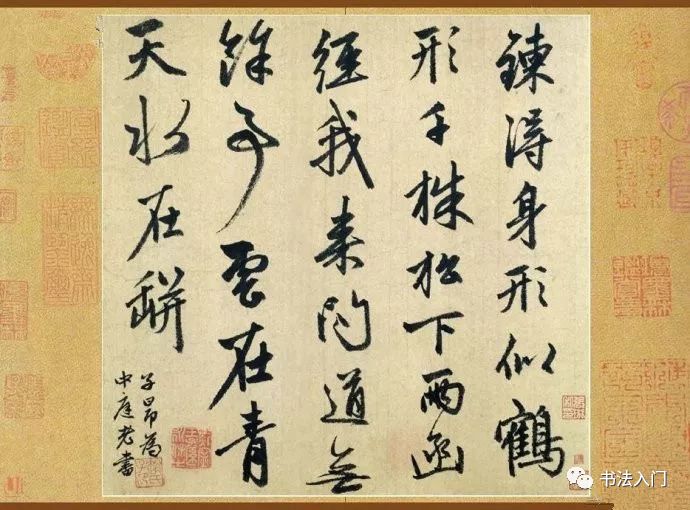 鍊得身形似鶴
形千株松下兩函
經我來問道無
餘事雲在青
天水在缾
子昂為
中庭老書
书法入门